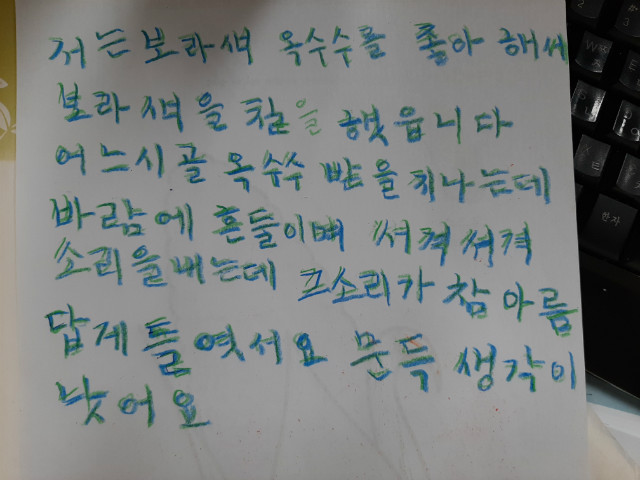 저는 보라색 옥수수를 좋아 해서
보라색을 칠을 했읍니다
어느시골 옥수수 밭을 지나는데
바람에 흔들이며 셔걱셔걱
소리을내는데 그소리가 참 아름
답게 들엿서요 문득 생각이
낫어요